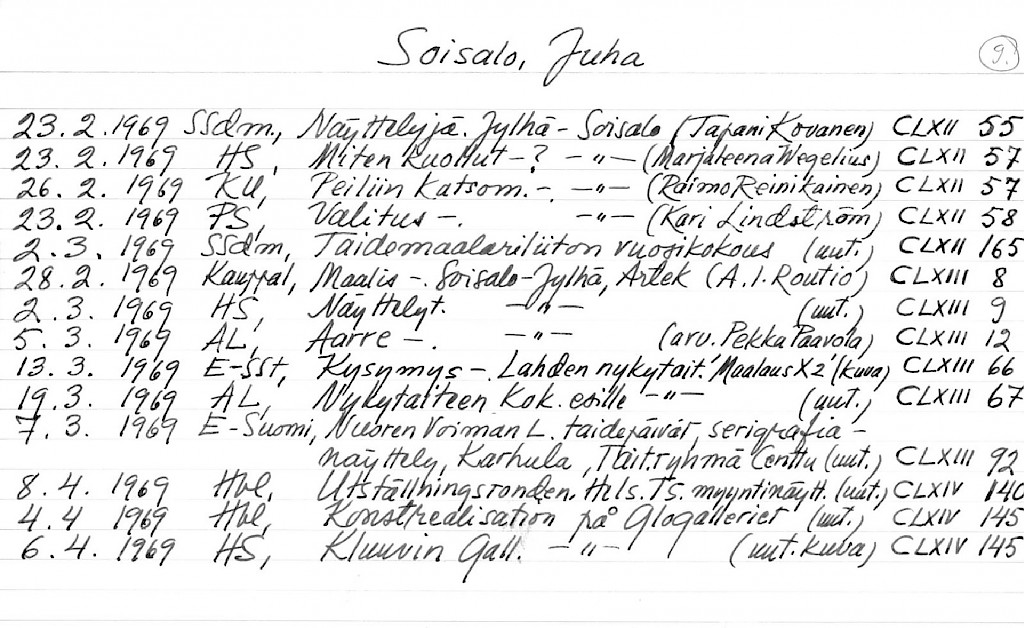 Soisalo, Juha
9.
23. 2. 1969 SSdm., Näyttelyjä. Jylhä - Soisalo (Tapani Kovanen) CLXII 55
23. 2. 1969 HS, Miten kuollut -? -"- (Marjaleena Wegelius) CLXII 57
26. 2. 1969 KU, Peiliin katsom. - -"- (Raimo Reinikainen) CLXII 57
23. 2. 1969 PS, Valitus -. -"- (Kari Lindström) CLXII 58
2. 3. 1969 SSdm, Taidemaalariliiton vuosikokous (uut.) CLXII 165
28. 2. 1969 Kauppal, Maalis -. Soisalo-Jylhä, Artek (A. I. Routio) CLXIII 8
2. 3. 1969 HS, Näyttelyt. -"- (uut.) CLXIII 9
5. 3. 1969 AL, Aarre -. -"- (arv. Pekka Paavola) CLXIII 12
13. 3. 1969 E-SSt, Kysymys -. Lahden nykytait. "Maalaus X2" (kuva) CLXIII 66
19. 3. 1969 AL, Nykytaiteen kok. esille -"- (uut.) CLXIII 67
7. 3. 1969 E-Suomi, Nuoren Voiman L. taidepäivät, serigrafia-
näyttely, Karhula, Tait.ryhmä Centtu (uut.) CLXIII 92
8. 4. 1969 Hbl, Utställningsronden. Hels. TS. myyntinäytt. (uut.) CLXIV 140
4. 4 1969 Hbl, Konstrealisation på Glogalleriet (uut.) CLXIV 145
6. 4. 1969 HS, Kluuvin Gall. -"- (uut. kuva) CLXIV 145